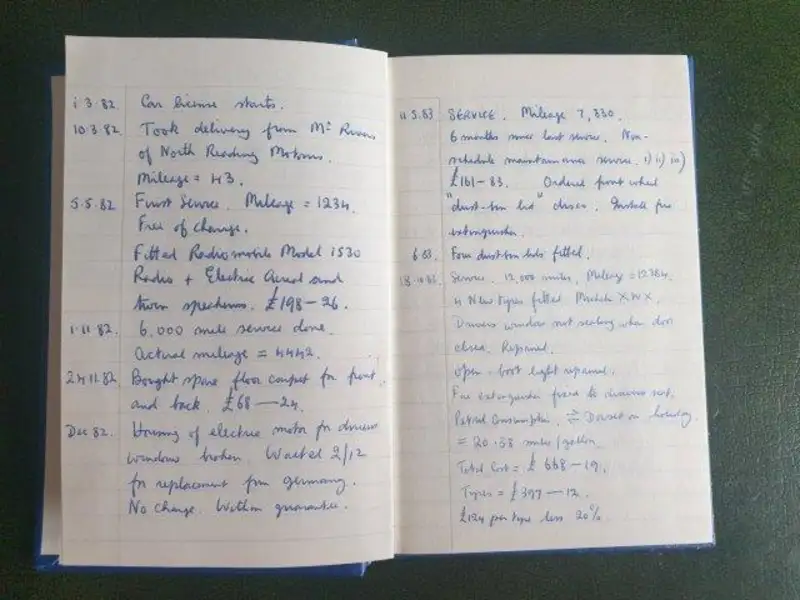 1.3.82. Car license starts.
10.3.82. Took delivery from Mr Rivers
of North Reading Motors.
Mileage = 43.
5.5.82 First Service. Mileage = 1234.
Free of charge.
Fitted Radiomobile Model 1530
Radio + Electric Aerial and
twin speakers. £198-26.
1.11.82. 6,000 mile service done.
Actual mileage = 4442.
24.11.82 Bought spare floor carpet for front
and back. £68-24
Dec 82. Housing of electric motor for drivers
window broken. Waited 2/12
for replacement from Germany.
No charge. Within guarantee.
11.5.83 SERVICE. Mileage 7,830.
6 months since last service. Non-
schedule maintainance service. i) ii) iii)
£161-83. Ordered front wheel
"dust-bin lid" discs. Install fire
extinguisher.
6.83. Four dustbin lids fitted.
18.10.83. Service. 12,000 miles, Mileage = 12384.
4 New tyres fitted Michelin XWX.
Drivers window not sealing when door
closed. Repaired.
Open-boot light repaired.
Fire extinguisher fixed to drivers seat.
Petrol Consumption. ⇌ Dorset on holiday
= 20.38 miles/gallon.
Total Cost = £668-19.
Tyres = £397-12.
£124 per tyre less 20%.